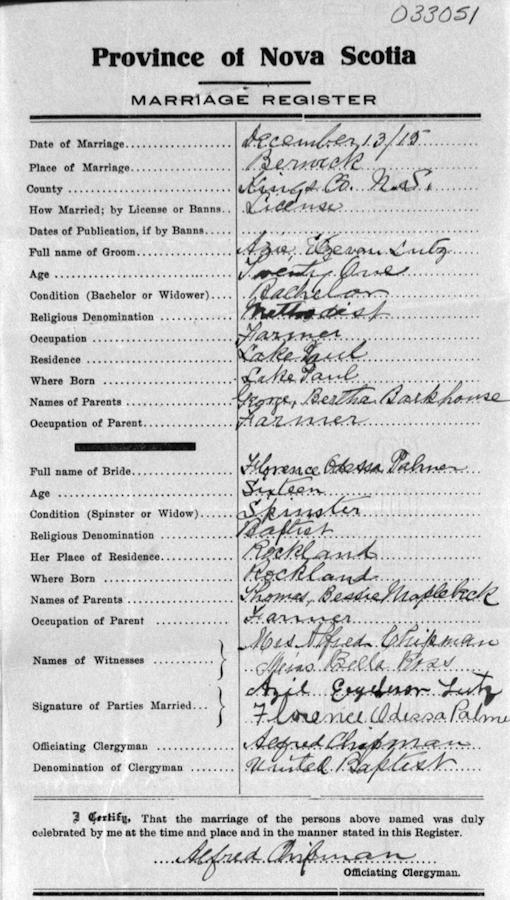 033051
Province of Nova Scotia
MARRIAGE REGISTER
Date of Marriage December 13/15
Place of Marriage Berwick
County Kings Co. N.S.
How Married; by License or Banns License
Dates of Publication, if by Banns
Full name of Groom Lutz
Age Twenty One
Condition (Bachelor or Widower) Bachelor
Religious Denomination Methodist
Occupation Farmer
Residence Lake Paul
Where Born Lake Paul
Names of Parents George, Bertha Barkhouse
Occupation of Parent Farmer
Full name of Bride Florence Odessa Palmer
Age Sixteen
Condition (Spinster or Widow) Spinster
Religious Denomination Baptist
Her Place of Residence Rockland
Where Born Rockland
Names of Parents Thomas, Bessie Maplebeck
Occupation of Parent Farmer
Names of Witnesses } Mrs Alfred Chipman
Miss Bella Ross
Signature of Parties Married } Lutz
Florence Odessa Palme
Officiating Clergyman Alfred Chipman
Denomination of Clergyman United Baptist
I Certify, That the marriage of the persons above named was duly
celebrated by me at the time and place and in the manner stated in this Register.
Alfred Chipman
Officiating Clergyman.